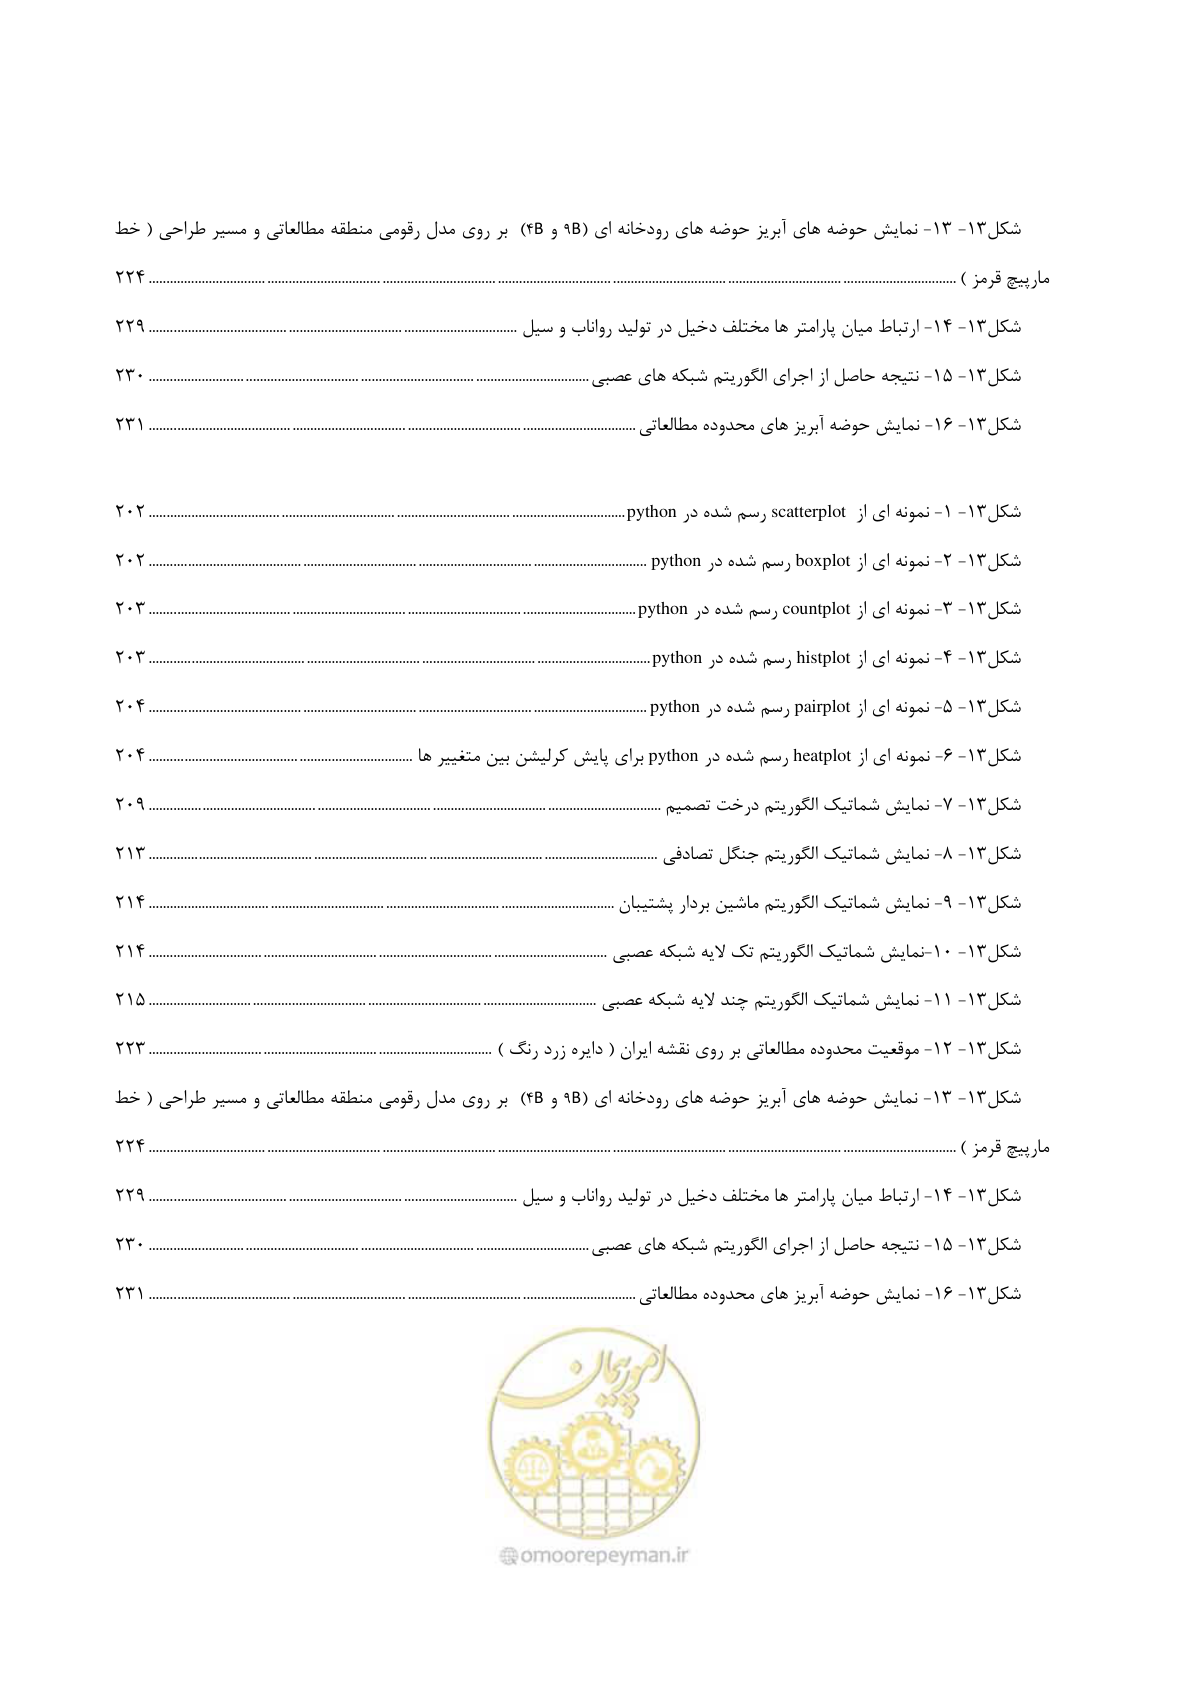 شکل۱۳- ۱۳- نمایش حوضه های آبریز حوضه های رودخانه ای (۹B و ۴B) بر روی مدل رقومی منطقه مطالعاتی و مسیر طراحی ( خط
مارپیچ قرمز ) ........................................ ۲۲۴
شکل۱۳- ۱۴- ارتباط میان پارامتر ها مختلف دخیل در تولید رواناب و سیل ........................................ ۲۲۹
شکل۱۳- ۱۵- نتیجه حاصل از اجرای الگوریتم شبکه های عصبی ........................................ ۲۳۰
شکل۱۳- ۱۶- نمایش حوضه آبریز های محدوده مطالعاتی ........................................ ۲۳۱
شکل۱۳- ۱- نمونه ای از scatterplot رسم شده در python ........................................ ۲۰۲
شکل۱۳- ۲- نمونه ای از boxplot رسم شده در python ........................................ ۲۰۲
شکل۱۳- ۳- نمونه ای از countplot رسم شده در python ........................................ ۲۰۳
شکل۱۳- ۴- نمونه ای از histplot رسم شده در python ........................................ ۲۰۳
شکل۱۳- ۵- نمونه ای از pairplot رسم شده در python ........................................ ۲۰۴
شکل۱۳- ۶- نمونه ای از heatplot رسم شده در python برای پایش کرلیشن بین متغییر ها ........................................ ۲۰۴
شکل۱۳- ۷- نمایش شماتیک الگوریتم درخت تصمیم ........................................ ۲۰۹
شکل۱۳- ۸- نمایش شماتیک الگوریتم جنگل تصادفی ........................................ ۲۱۳
شکل۱۳- ۹- نمایش شماتیک الگوریتم ماشین بردار پشتیبان ........................................ ۲۱۴
شکل۱۳- ۱۰-نمایش شماتیک الگوریتم تک لایه شبکه عصبی ........................................ ۲۱۴
شکل۱۳- ۱۱- نمایش شماتیک الگوریتم چند لایه شبکه عصبی ........................................ ۲۱۵
شکل۱۳- ۱۲- موقعیت محدوده مطالعاتی بر روی نقشه ایران ( دایره زرد رنگ ) ........................................ ۲۲۳
شکل۱۳- ۱۳- نمایش حوضه های آبریز حوضه های رودخانه ای (۹B و ۴B) بر روی مدل رقومی منطقه مطالعاتی و مسیر طراحی ( خط
مارپیچ قرمز ) ........................................ ۲۲۴
شکل۱۳- ۱۴- ارتباط میان پارامتر ها مختلف دخیل در تولید رواناب و سیل ........................................ ۲۲۹
شکل۱۳- ۱۵- نتیجه حاصل از اجرای الگوریتم شبکه های عصبی ........................................ ۲۳۰
شکل۱۳- ۱۶- نمایش حوضه آبریز های محدوده مطالعاتی ........................................ ۲۳۱
امور پیمان
omoorepeyman.ir